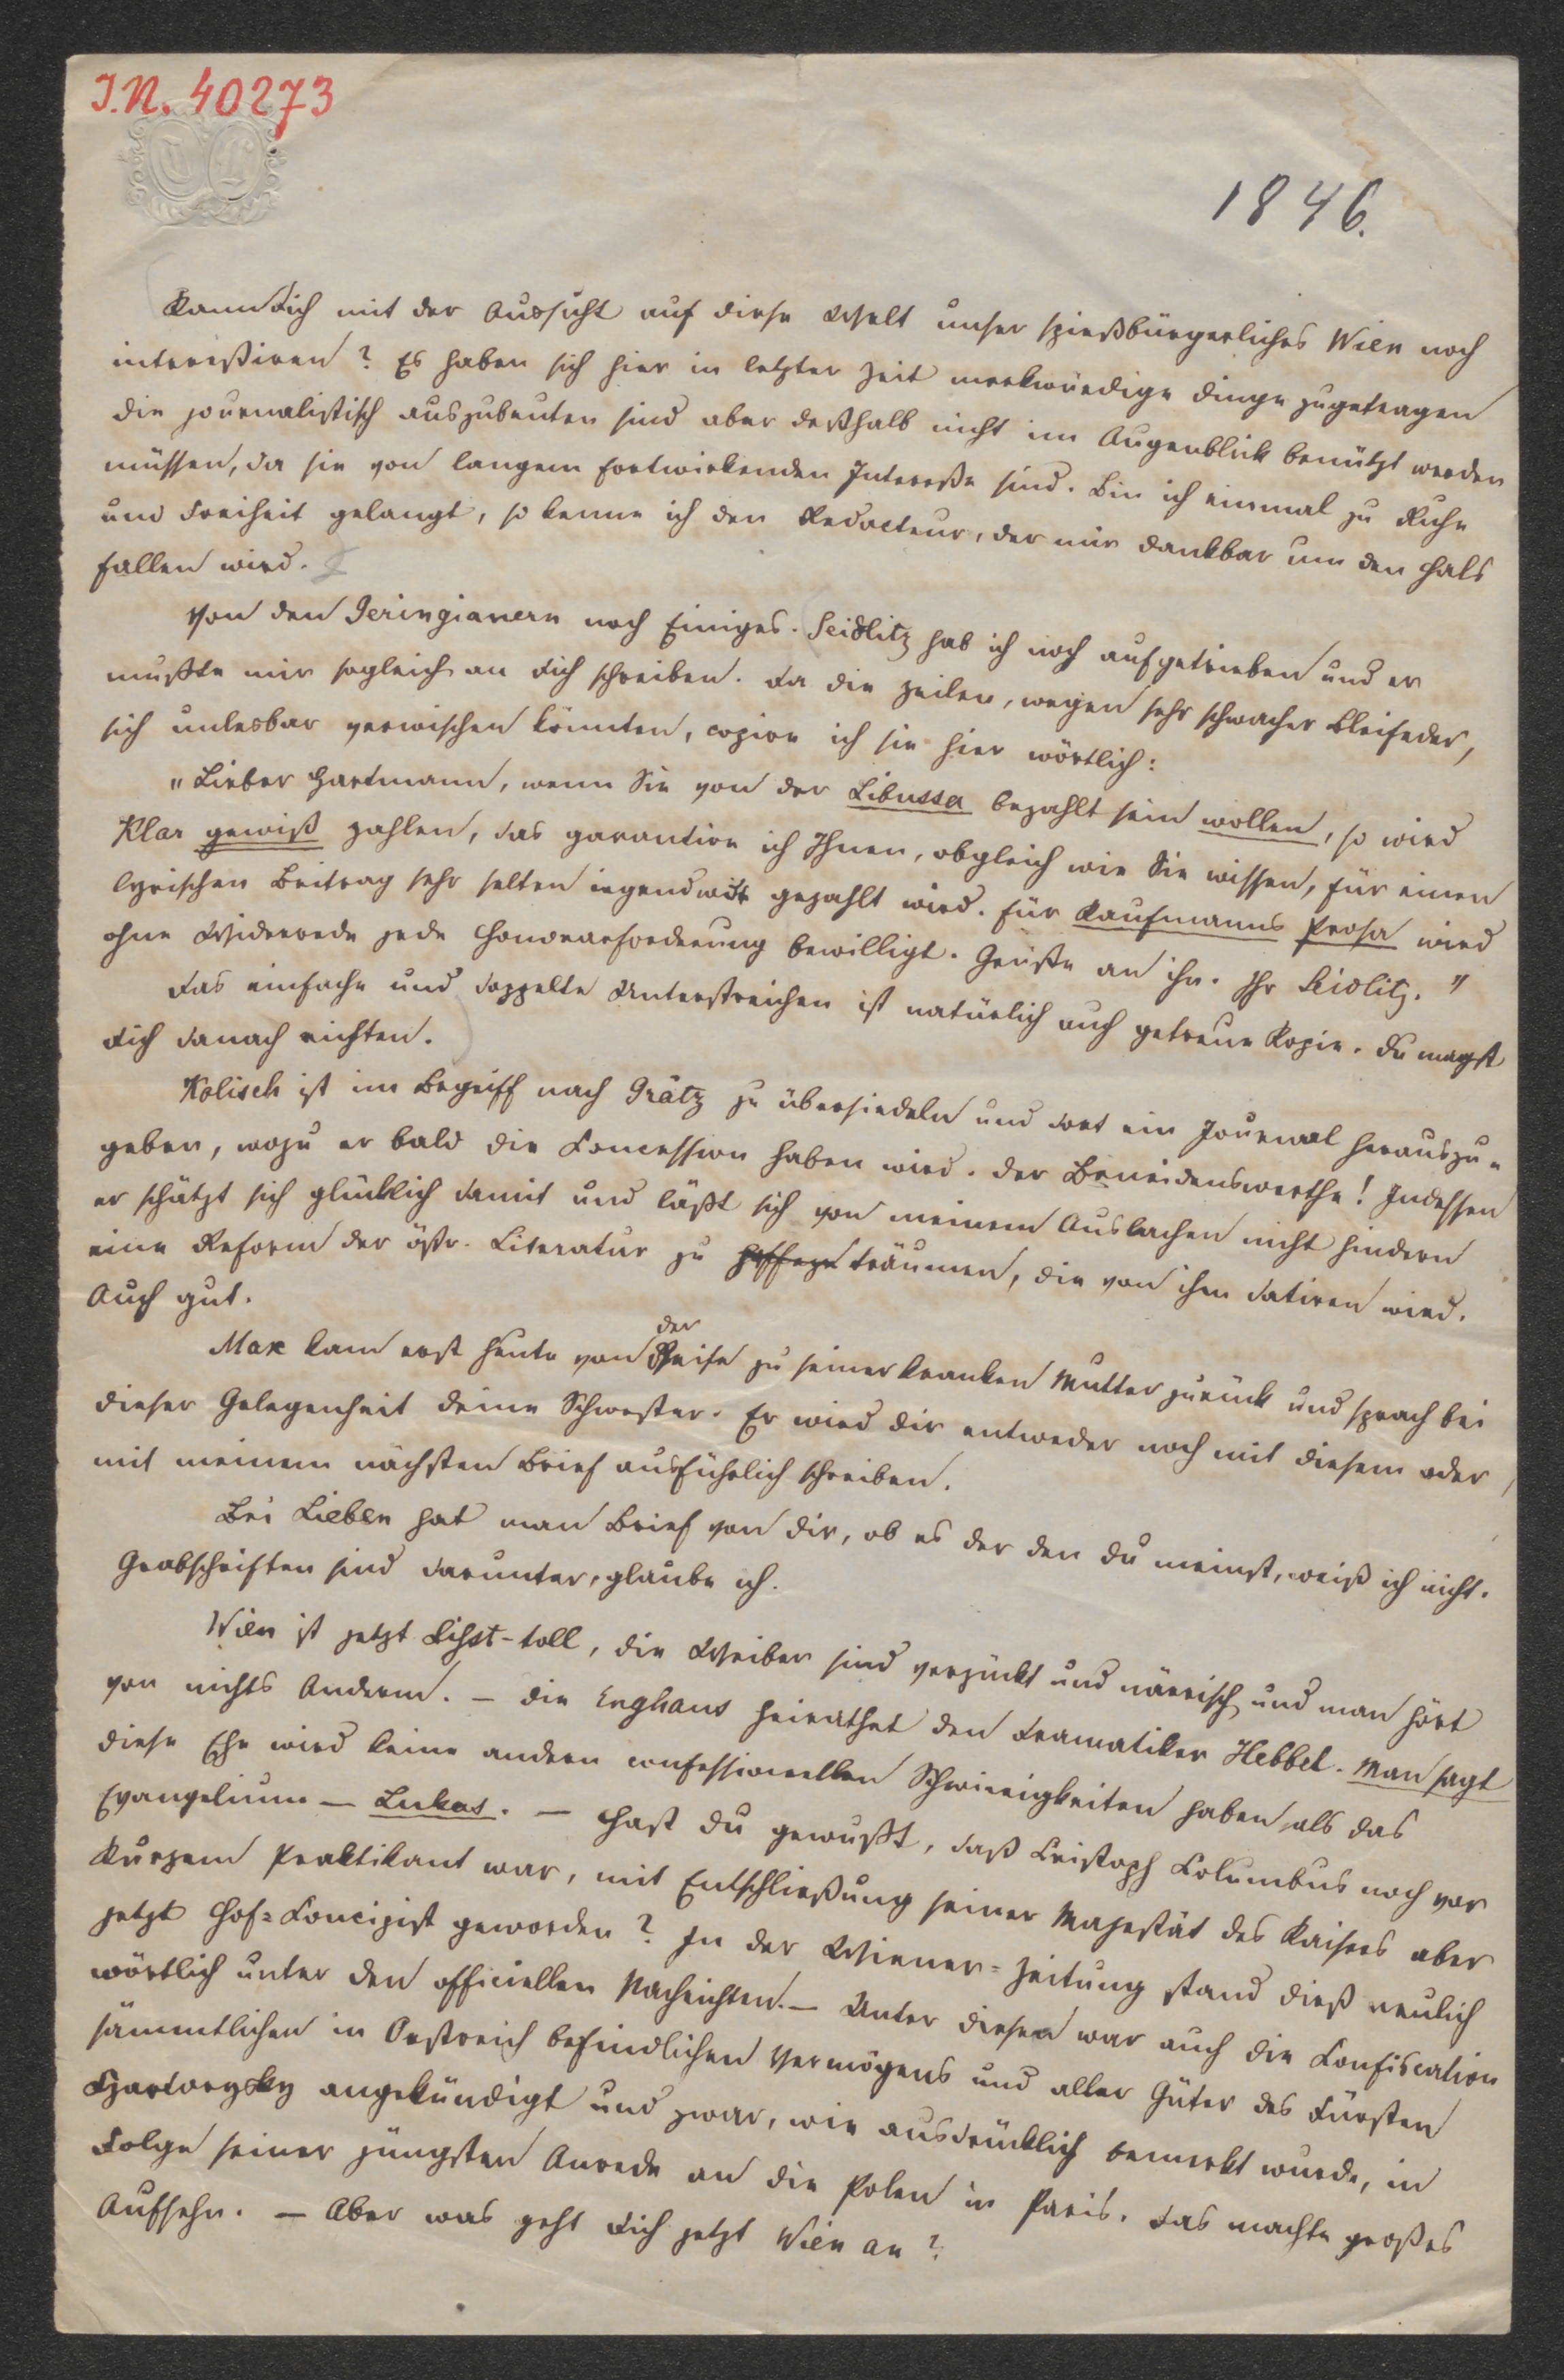 J.N. 40273
1846.
Kann Dich mit der Aussicht auf diese Welt unser spießbürgerliches Wien noch
intereßiren? Es haben sich hier in letzter Zeit merkwürdige Dinge zugetragen
die journalistisch auszubeuten sind aber deßhalb nicht im Augenblick benützt werden
müssen, da sie von langem fortwirkenden Intereße sind. Bin ich einmal zu Ruhe
und Freiheit gelangt, so kenne ich den Redacteur, der mir dankbar um den Hals
fallen wird.
Von den Geringianern noch Einiges. Seidlitz hab ich noch aufgetrieben und er
mußte mir sogleich an Dich schreiben. Da die Zeilen, wegen sehr schwacher Bleifeder,
sich unlesbar verwischen könnten, copire ich sie hier wörtlich:
"Lieber Hartmann, wenn Sie von der Libussa bezahlt sein wollen, so wird
Klar gewiß zahlen, das garantire ich Ihnen, obgleich wie Sie wissen, für einen
lyrischen Beitrag sehr selten irgendwo gezahlt wird. Für Kaufmanns Prosa wird
ohne Widerrede jede Honorarforderung bewilligt. Grüße an ihn. Ihr Seidlitz."
Das einfache und doppelte Unterstreichen ist natürlich auch getreue Kopie. Du magst
Dich danach richten.
Kolisch ist im Begriff nach Grätz zu übersiedeln und dort ein Journal herauszu-
geben, wozu er bald die Concession haben wird. Der Beneidenswerthe! Indessen
er schätzt sich glücklich damit und läßt sich von meinem Auslachen nicht hindern
eine Reform der östr. Literatur zu hoffen träumen, die von ihm datiren wird.
Auch gut.
Max kam erst heute von der Reise zu seiner kranken Mutter zurück und sprach bei
dieser Gelegenheit deine Schwester. Er wird dir entweder noch mit diesem oder
mit meinem nächsten Brief ausführlich schreiben.
Bei Lieben hat man Brief von dir, ob es der den du meinst, weiß ich nicht.
Grabschriften sind darunter, glaube ich.
Wien ist jetzt Lißt-toll, die Weiber sind verzückt und närrisch und man hört
von nichts Anderm. – Die Enghaus heirathet den Dramatiker Hebbel. Man sagt
diese Ehe wird keine andern confessionellen Schwierigkeiten haben, als das
Evangelium – Lukas. – Hast du gewußt, daß Cristoph Columbus noch vor
Kurzem Praktikant war, mit Entschließung seiner Majestät des Kaisers aber
jetzt Hof-Concipist geworden? In der Wiener-Zeitung stand dieß neulich
wörtlich unter den officiellen Nachrichten. – Unter diesen war auch die Confiscation
sämmtlichen in Oestreich befindlichen Vermögens und aller Güter des Fürsten
Czartorysky angekündigt und zwar, wie ausdrücklich bemerkt wurde, in
Folge seiner jüngsten Anrede an die Polen in Paris. Das machte großes
Aufsehn. – Aber was geht Dich jetzt Wien an?